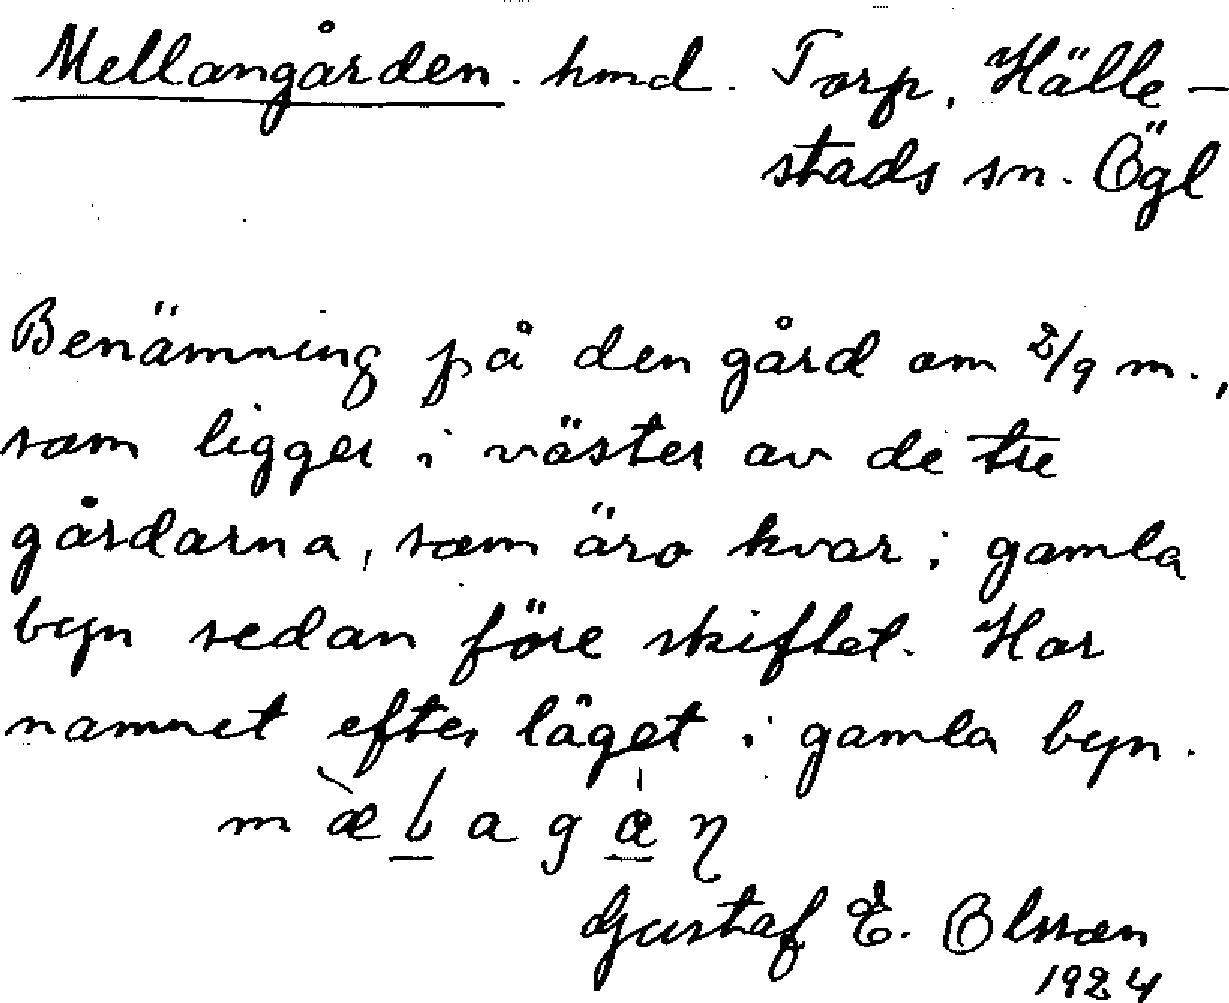 Mellangården. hmd. Torp, Hälle-
stads sn. Ögl
Benämning på den gård om 2/9 m.,
som ligger i väster av de tre
gårdarna, som äro kvar i gamla
byn sedan före skiftet. Har
namnet efter läget i gamla byn.
Gustaf E. Olsson
1924